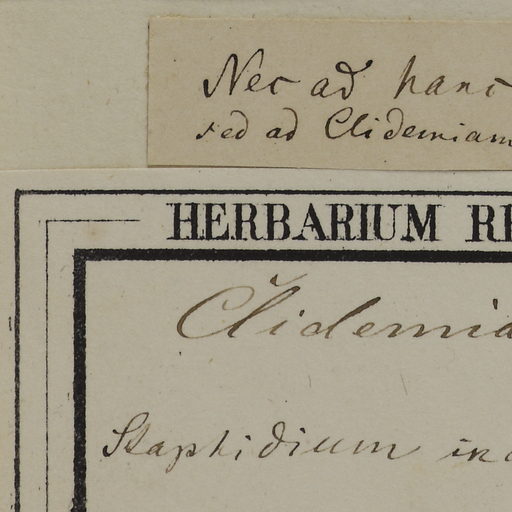 Nec ad hanc
sed ad Clidemiam
HERBARIUM RE
Clidemia
Staphidium in